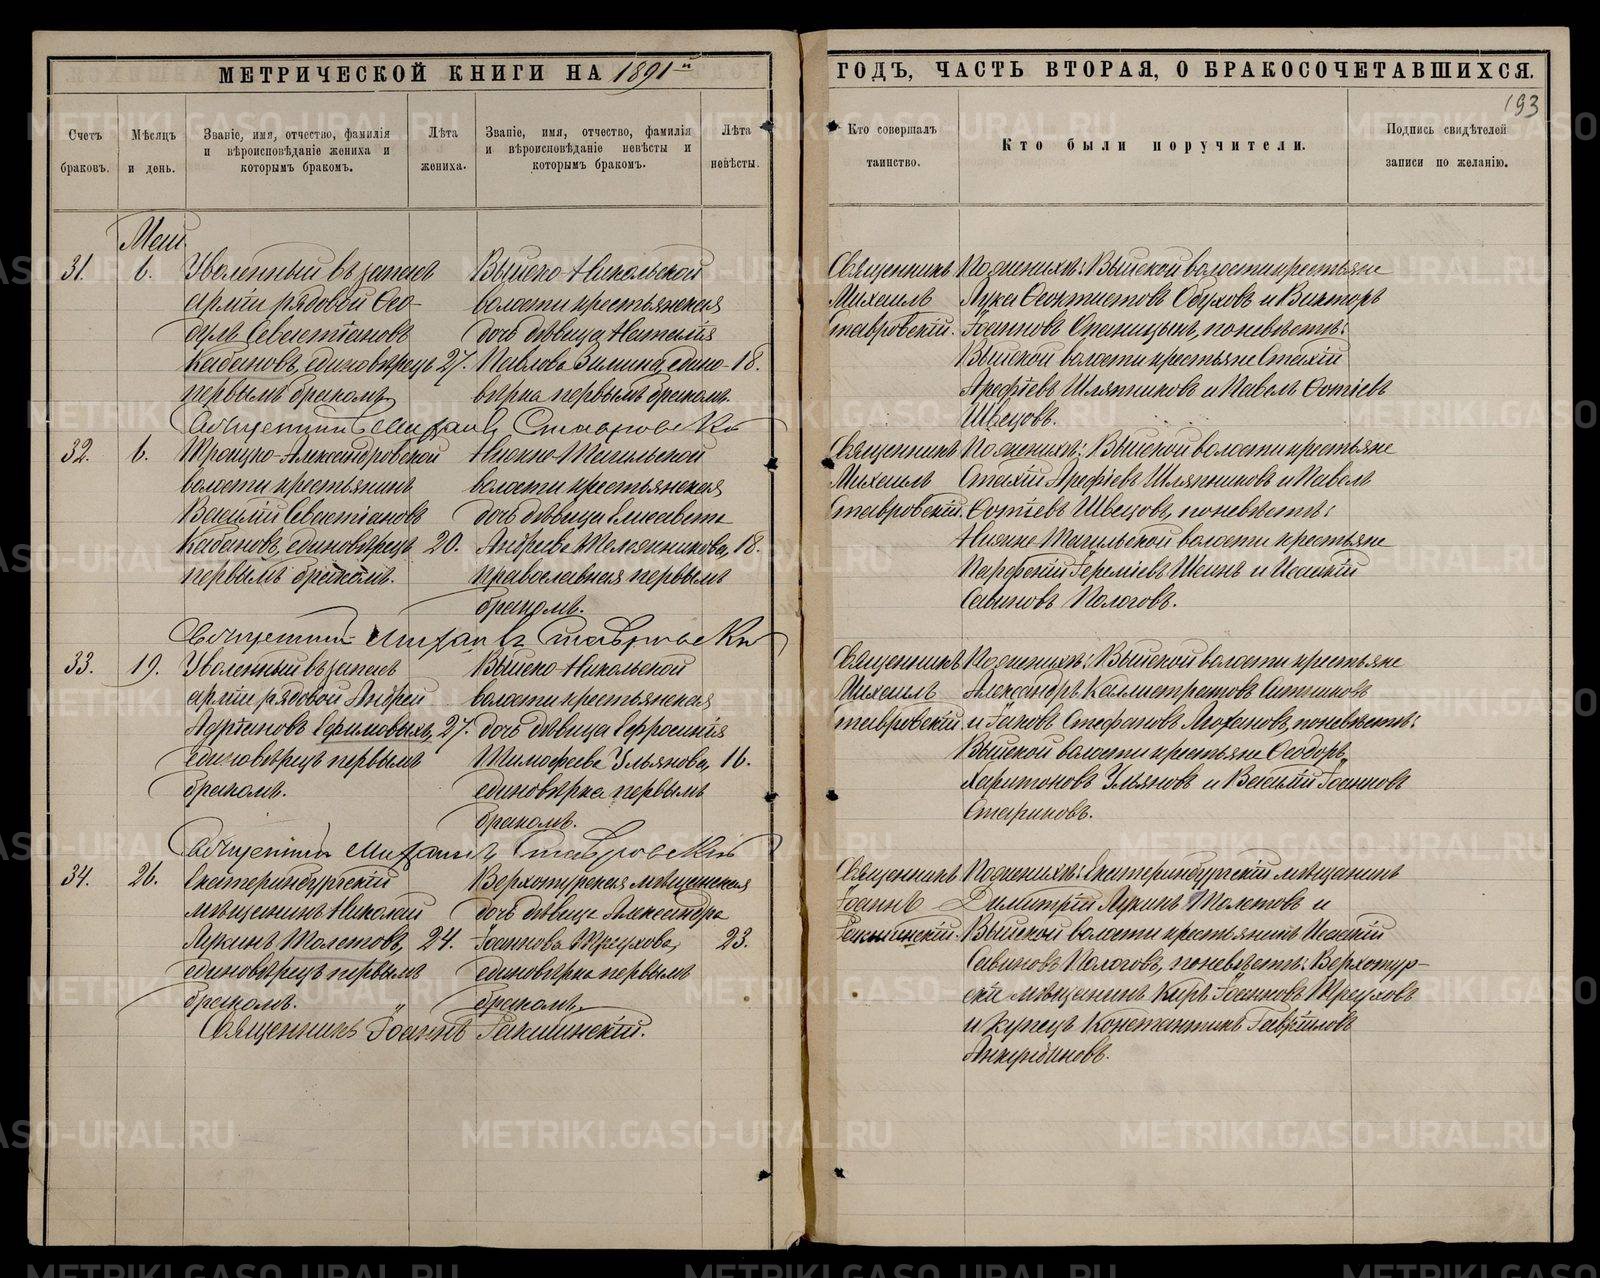 МЕТРИЧЕСКОЙ КНИГИ НА 1891й
ГОДЪ, ЧАСТЬ ВТОРАЯ, О БРАКОСОЧЕТАВШИХСЯ.
193
Счетъ браковъ.
Мѣсяцъ и день.
Званіе, имя, отчество, фамилія
и вѣроисповѣданіе жениха и
которымъ бракомъ.
Лѣта жениха.
Званіе, имя, отчество, фамилія
и вѣроисповѣданіе невѣсты и
которымъ бракомъ.
Лѣта невѣсты.
Кто совершалъ
таинство.
Кто были поручители.
Подпись свидѣтелей
записи по желанію.
Маи
31.
6.
Уволенный въ запасъ
арміи рядовой Ѳео-
дулъ Севастіановъ
Кабановъ, единовѣрецъ
первымъ бракомъ
27.
Выйско-Никольской
волости крестьянская
дочь дѣвица Наталія
Павлова Зимина, едино-
вѣрка первымъ бракомъ.
18.
Священникъ
Михаилъ
Ставровскій.
По женихѣ: Выйской волости крестьяне
Лука Ѳеоктистовъ Обуховъ и Викторъ
Іоанновъ Станицынъ, по невѣстѣ:
Выйской волости крестьяне Стахій
Арефіевъ Шляпниковъ и Павелъ Фотіевъ
Швецовъ.
Священникъ Михаилъ Ставровскій
32.
6.
Троицко-Александровской
волости крестьянинъ
Василій Севастіановъ
Кабановъ, единовѣрецъ
первымъ бракомъ.
20.
Нижне-Тагильской
волости крестьянская
дочь дѣвица Елисавета
Андреева Мелянникова,
православная первымъ
бракомъ.
18.
Священникъ
Михаилъ
Ставровскій.
По женихѣ: Выйской волости крестьяне
Стахій Арефіевъ Шляпниковъ и Павелъ
Фотіевъ Швецовъ, по невѣстѣ:
Нижне-Тагильской волости крестьяне
Парфеній Іереміевъ Шеинъ и Исаакій
Савиновъ Пологовъ.
Священникъ Михаилъ Ставровскій
33.
19.
Уволенный въ запасъ
арміи рядовой Андрей
Адріановъ Ефимовыхъ,
единовѣрецъ первымъ
бракомъ.
27.
Выйско-Никольской
волости крестьянская
дочь дѣвица Евфросинія
Тимофеева Ульянова,
единовѣрка первымъ
бракомъ.
16.
Священникъ
Михаилъ
Ставровскій.
По женихѣ: Выйской волости крестьяне
Александръ Каллистратовъ Ситниковъ
и Іаковъ Стефановъ Лоханов, по невѣстѣ:
Выйской волости крестьяне Ѳеодоръ
Харитоновъ Ульяновъ и Василій Іоанновъ
Стариковъ.
Священникъ Михаилъ Ставровскій
34.
26.
Екатеринбургскій
мѣщанинъ Николай
Лукинъ Толстовъ,
единовѣрецъ первымъ
бракомъ.
24.
Верхотурская мѣщанская
дочь дѣвица Александра
Іоаннова Треухова,
единовѣрка первымъ
бракомъ.
23.
Священникъ
Іоаннъ
Гакшинскій.
По женихѣ: Екатеринбургскій мѣщанинъ
Димитрій Лукинъ Толстовъ и
Выйской волости крестьянинъ Исаакій
Савиновъ Пологовъ, по невѣстѣ: Верхотур-
скіе мѣщанинъ Киръ Іоанновъ Треуховъ
и купецъ Константинъ Гавріиловъ
Анкундиновъ.
Священникъ Іоаннъ Гакшинскій.
METRIKI.GASO-URAL.RU